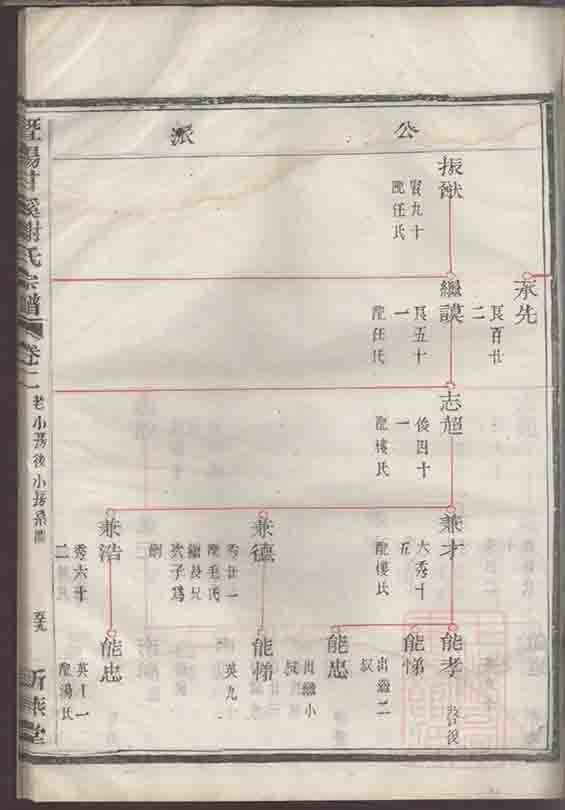 公派
承先
良百廿
二
振猷
賢九十
配任氏
繼謨
良五十
一
配任氏
志超
俊四十
一
配樓氏
兼才
大秀十
五
配樓氏
兼德
秀廿一
配毛氏
繼長兄
次子爲
嗣
兼浩
秀六十
二
能孝
啓後
能悌
出繼二
叔
能忠
出繼小
叔
能悌
英九十
能忠
英十一
配湯氏
暨陽甘溪謝氏宗譜
卷二
老小房後小房系圖